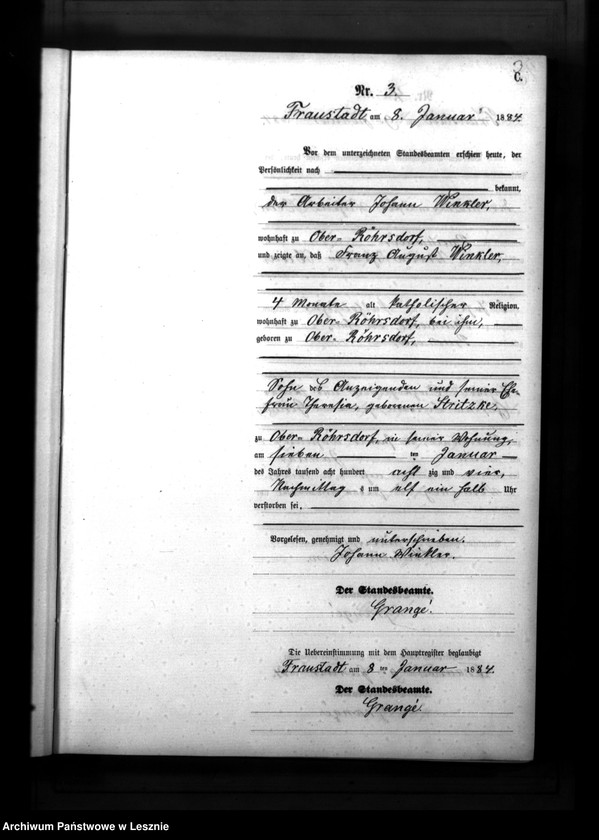 C.
Nr. 3.
Fraustadt am 8. Januar 1884
Vor dem unterzeichneten Standesbeamten erschien heute, der
Persönlichkeit nach
bekannt,
der Arbeiter Johann Winkler,
wohnhaft zu Ober-Röhrsdorf,
und zeigte an, daß Franz August Winkler,
4 Monate alt katholischer Religion,
wohnhaft zu Ober-Röhrsdorf, bei ihm,
geboren zu Ober-Röhrsdorf,
Sohn des Anzeigenden und seiner Ehe-
frau Theresia, geborenen Stritzke,
zu Ober-Röhrsdorf, in seiner Wohnung,
am sieben ten Januar
des Jahres tausend acht hundert acht zig und vier,
Nachmittag s um elf ein halb Uhr
verstorben sei.
Vorgelesen, genehmigt und unterschrieben.
Johann Winkler.
Der Standesbeamte.
Grangé.
Die Uebereinstimmung mit dem Hauptregister beglaubigt
Fraustadt am 8 ten Januar 1884.
Der Standesbeamte.
Grangé.
Archiwum Państwowe w Lesznie